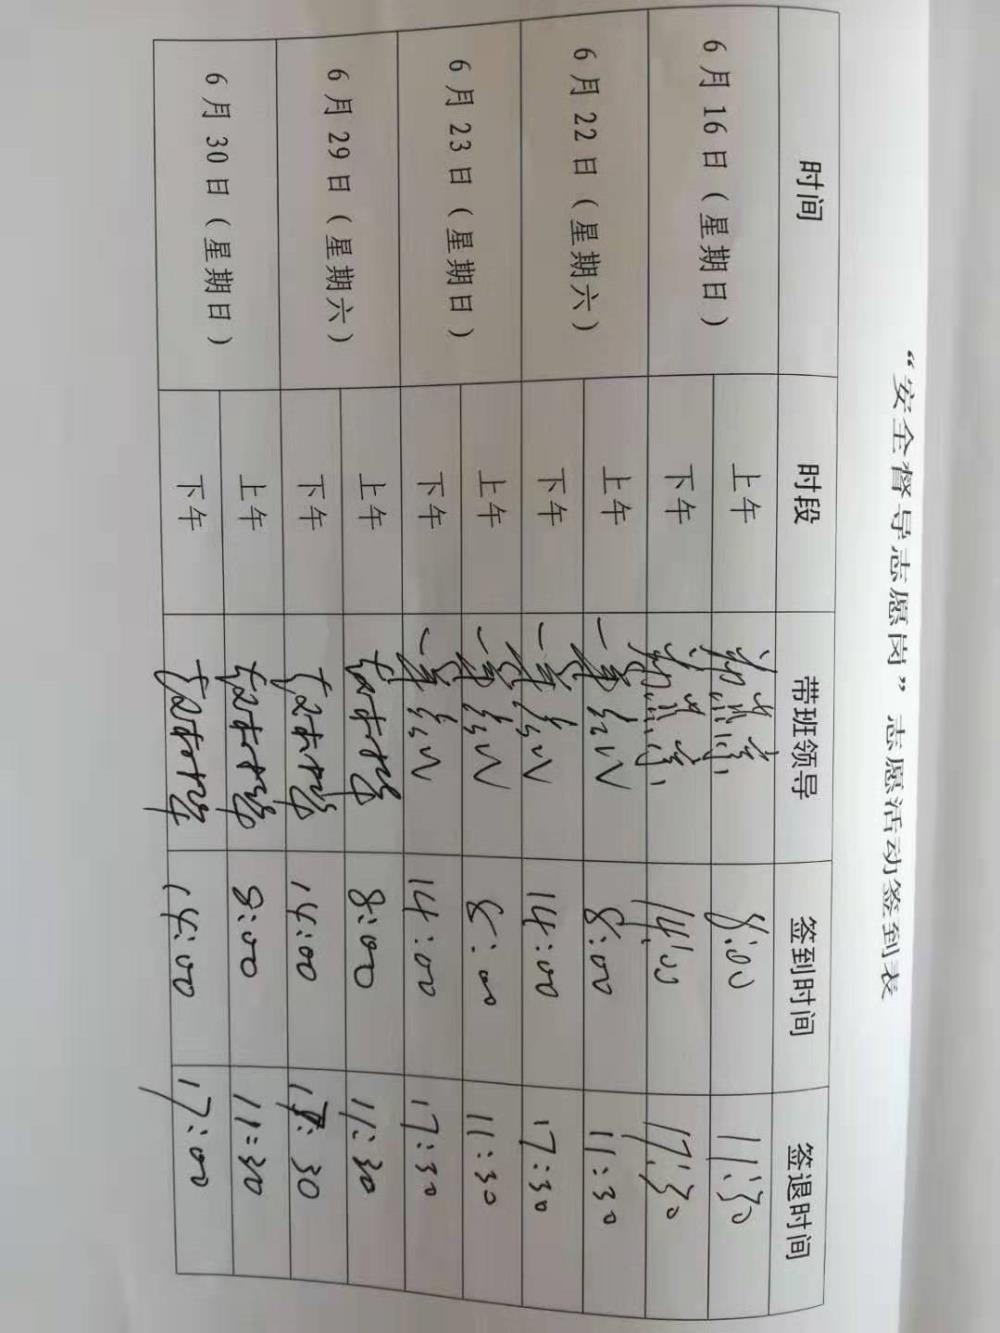 “安全督导志愿岗”志愿活动签到表
时间 时段 带班领导 签到时间 签退时间
6月16日（星期日） 上午 8:00 11:30
下午 14:00 17:30
6月22日（星期六） 上午 8:00 11:30
下午 14:00 17:30
6月23日（星期日） 上午 8:00 11:30
下午 14:00 17:30
6月29日（星期六） 上午 8:00 11:30
下午 14:00 17:30
6月30日（星期日） 上午 8:00 11:30
下午 14:00 17:00